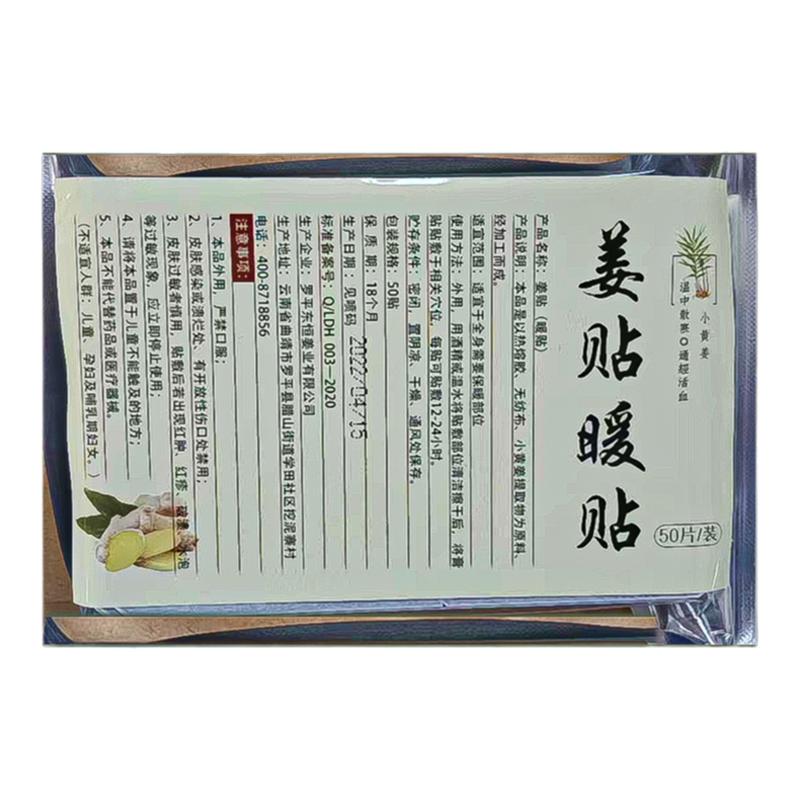 小黄姜
姜贴暖贴
50片/装
产品名称：姜贴（暖贴）
产品说明：本品是以热熔胶、无纺布、小黄姜提取物为原料，
经加工而成。
适宜范围：适宜于全身需要保暖部位
使用方法：外用，用酒精或温水将贴敷部位清洁擦干后，将膏
贴贴敷于相关穴位，每贴可贴敷12-24小时。
贮存条件：密闭，置阴凉、干燥、通风处保存。
包装规格：50贴
保 质 期：18个月
生产日期：见喷码 2022/04/15
标准备案号：Q/LDH 003-2020
生产企业：罗平东恒姜业有限公司
生产地址：云南省曲靖市罗平县腊山街道学田社区挖泥寨村
电话：400-8718856
注意事项：
1、本品外用，严禁口服；
2、皮肤感染或溃烂处、有开放性伤口处禁用；
3、皮肤过敏者慎用，贴敷后若出现红肿、红疹、水泡
等过敏现象，应立即停止使用；
4、请将本品置于儿童不能触及的地方；
5、本品不能代替药品或医疗器械。
（不适宜人群：儿童、孕妇及哺乳期妇女。）